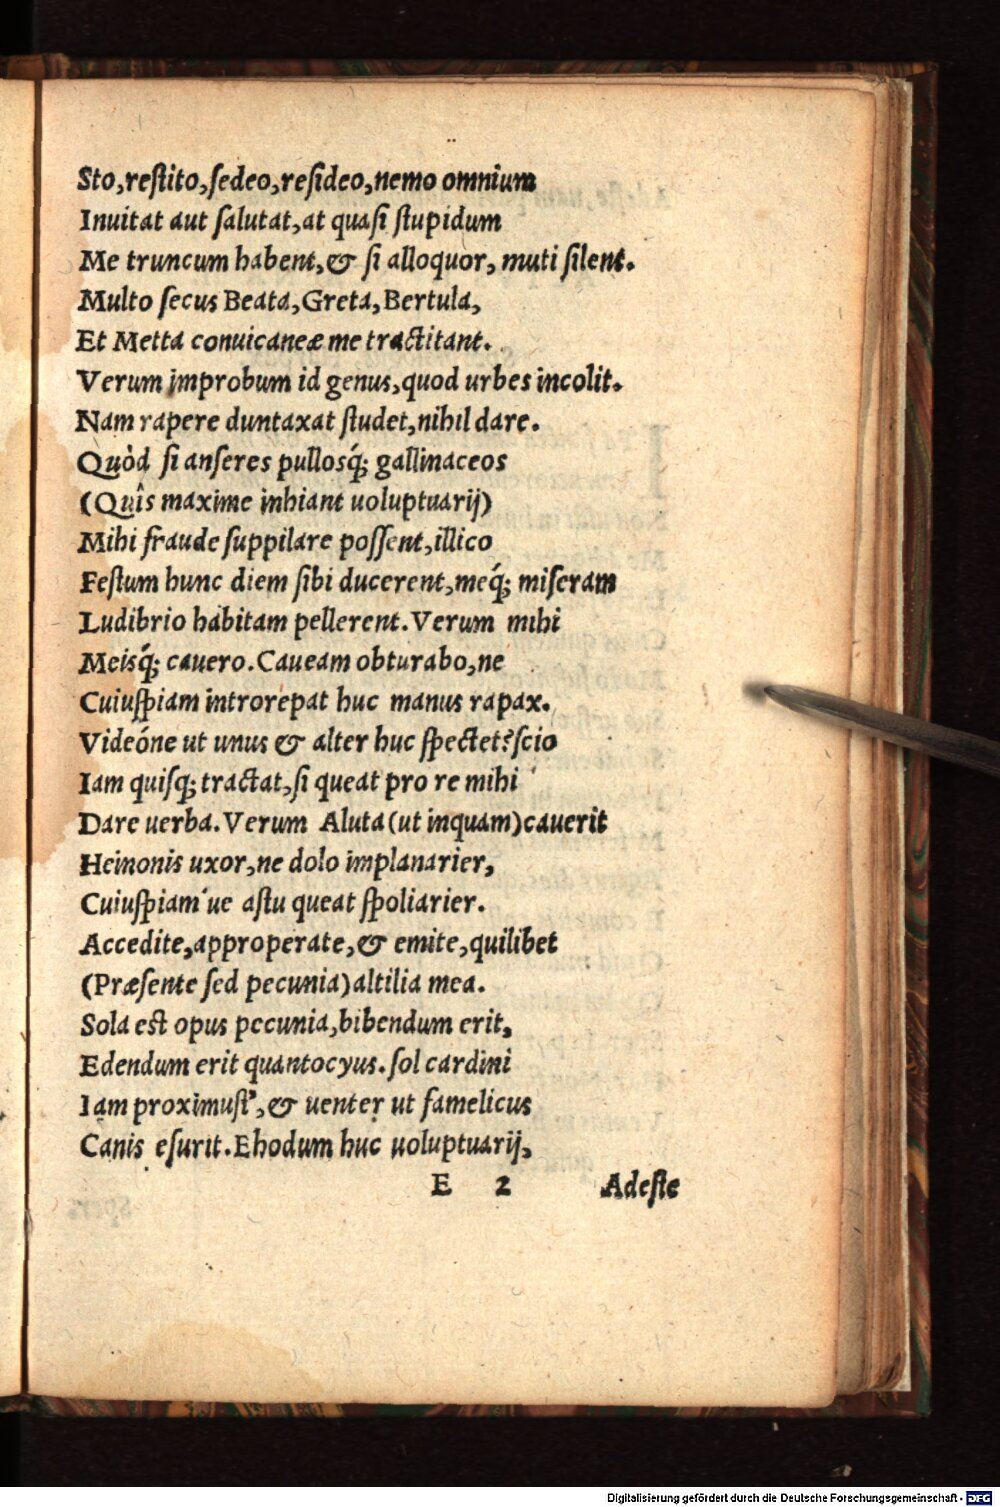 Sto,restito,sedeo,resideo,nemo omnium
Inuitat aut salutat,at quasi stupidum
Me truncum habent,& si alloquor, muti silent.
Multo secus Beata,Greta,Bertula,
Et Metta conuicaneæ me tractitant.
Verum improbum id genus,quod urbes incolit.
Nam rapere duntaxat studet,nihil dare.
Quòd si anseres pullosq́; gallinaceos
(Quîs maxime inhiant uoluptuarij)
Mihi fraude suppilare possent,illico
Festum hunc diem sibi ducerent,meq́; miseram
Ludibrio habitam pellerent.Verum mihi
Meisq́; cauero.Caueam obturabo,ne
Cuiuspiam introrepat huc manus rapax.
Videóne ut unus & alter huc spectet?scio
Iam quisq; tractat,si queat pro re mihi
Dare uerba.Verum Aluta(ut inquam)cauerit
Heinonis uxor,ne dolo implanarier,
Cuiuspiam ue astu queat spoliarier.
Accedite,approperate,& emite,quilibet
(Præsente sed pecunia)altilia mea.
Sola est opus pecunia,bibendum erit,
Edendum erit quantocyus.sol cardini
Iam proximust',& uenter ut famelicus
Canis esurit.Ehodum huc uoluptuarij,
E 2 Adeste
Digitalisierung gefördert durch die Deutsche Forschungsgemeinschaft - DFG